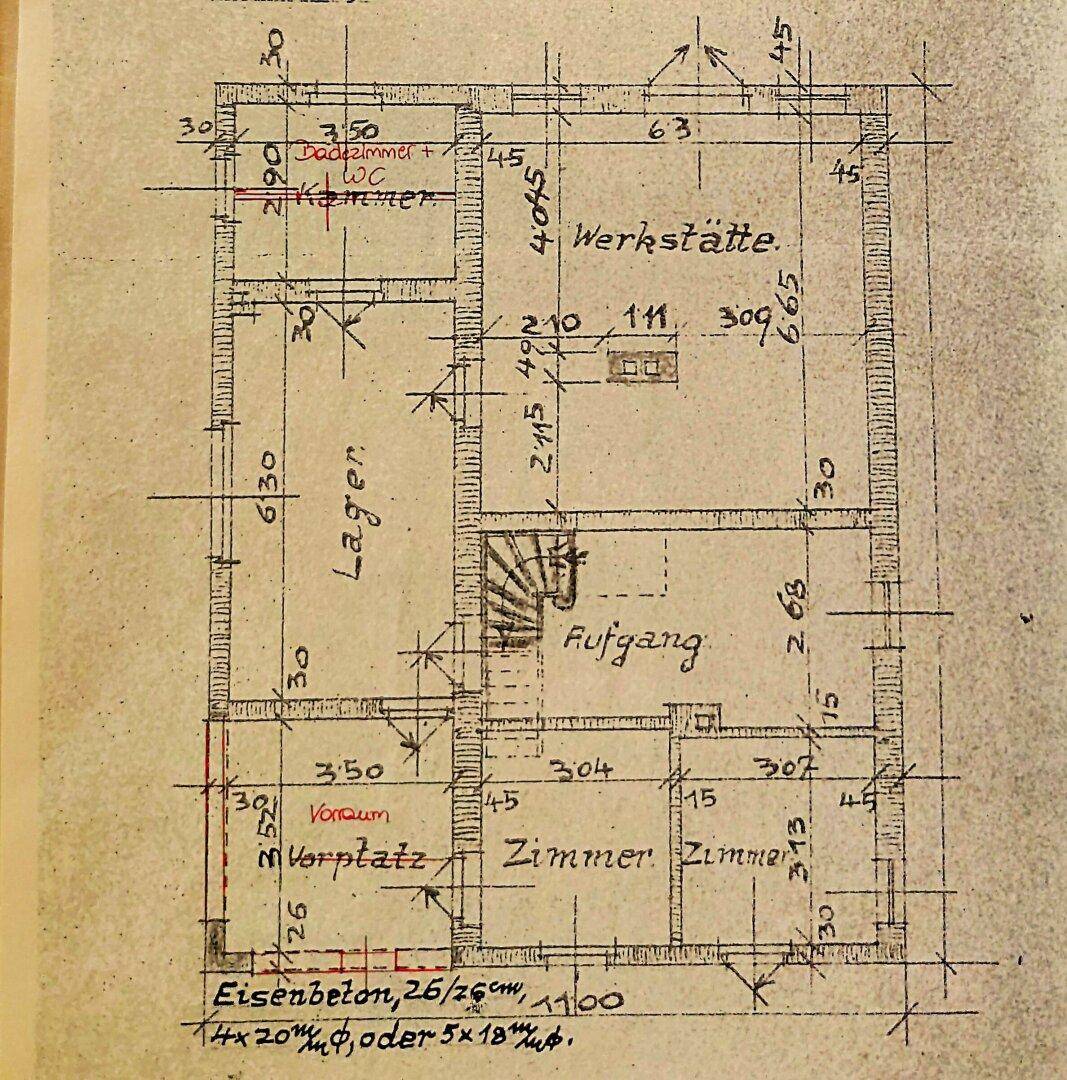 30
45
30
3'50
63
Badezimmer +
WC
45
45
2 90
Kammer.
4'045
Werkstätte.
30
2 10
1'11
3'09
49
6'65
2'115
6'30
Lager.
30
30
2 68
Aufgang.
15
3'50
3'04
3'07
30
45
15
45
3'52
Vorraum
Vorplatz
Zimmer.
Zimmer
3'13
26
30
Eisenbeton, 26/26 cm,
11'00
4 x 20 m/m ϕ, oder 5 x 18 m/m ϕ.